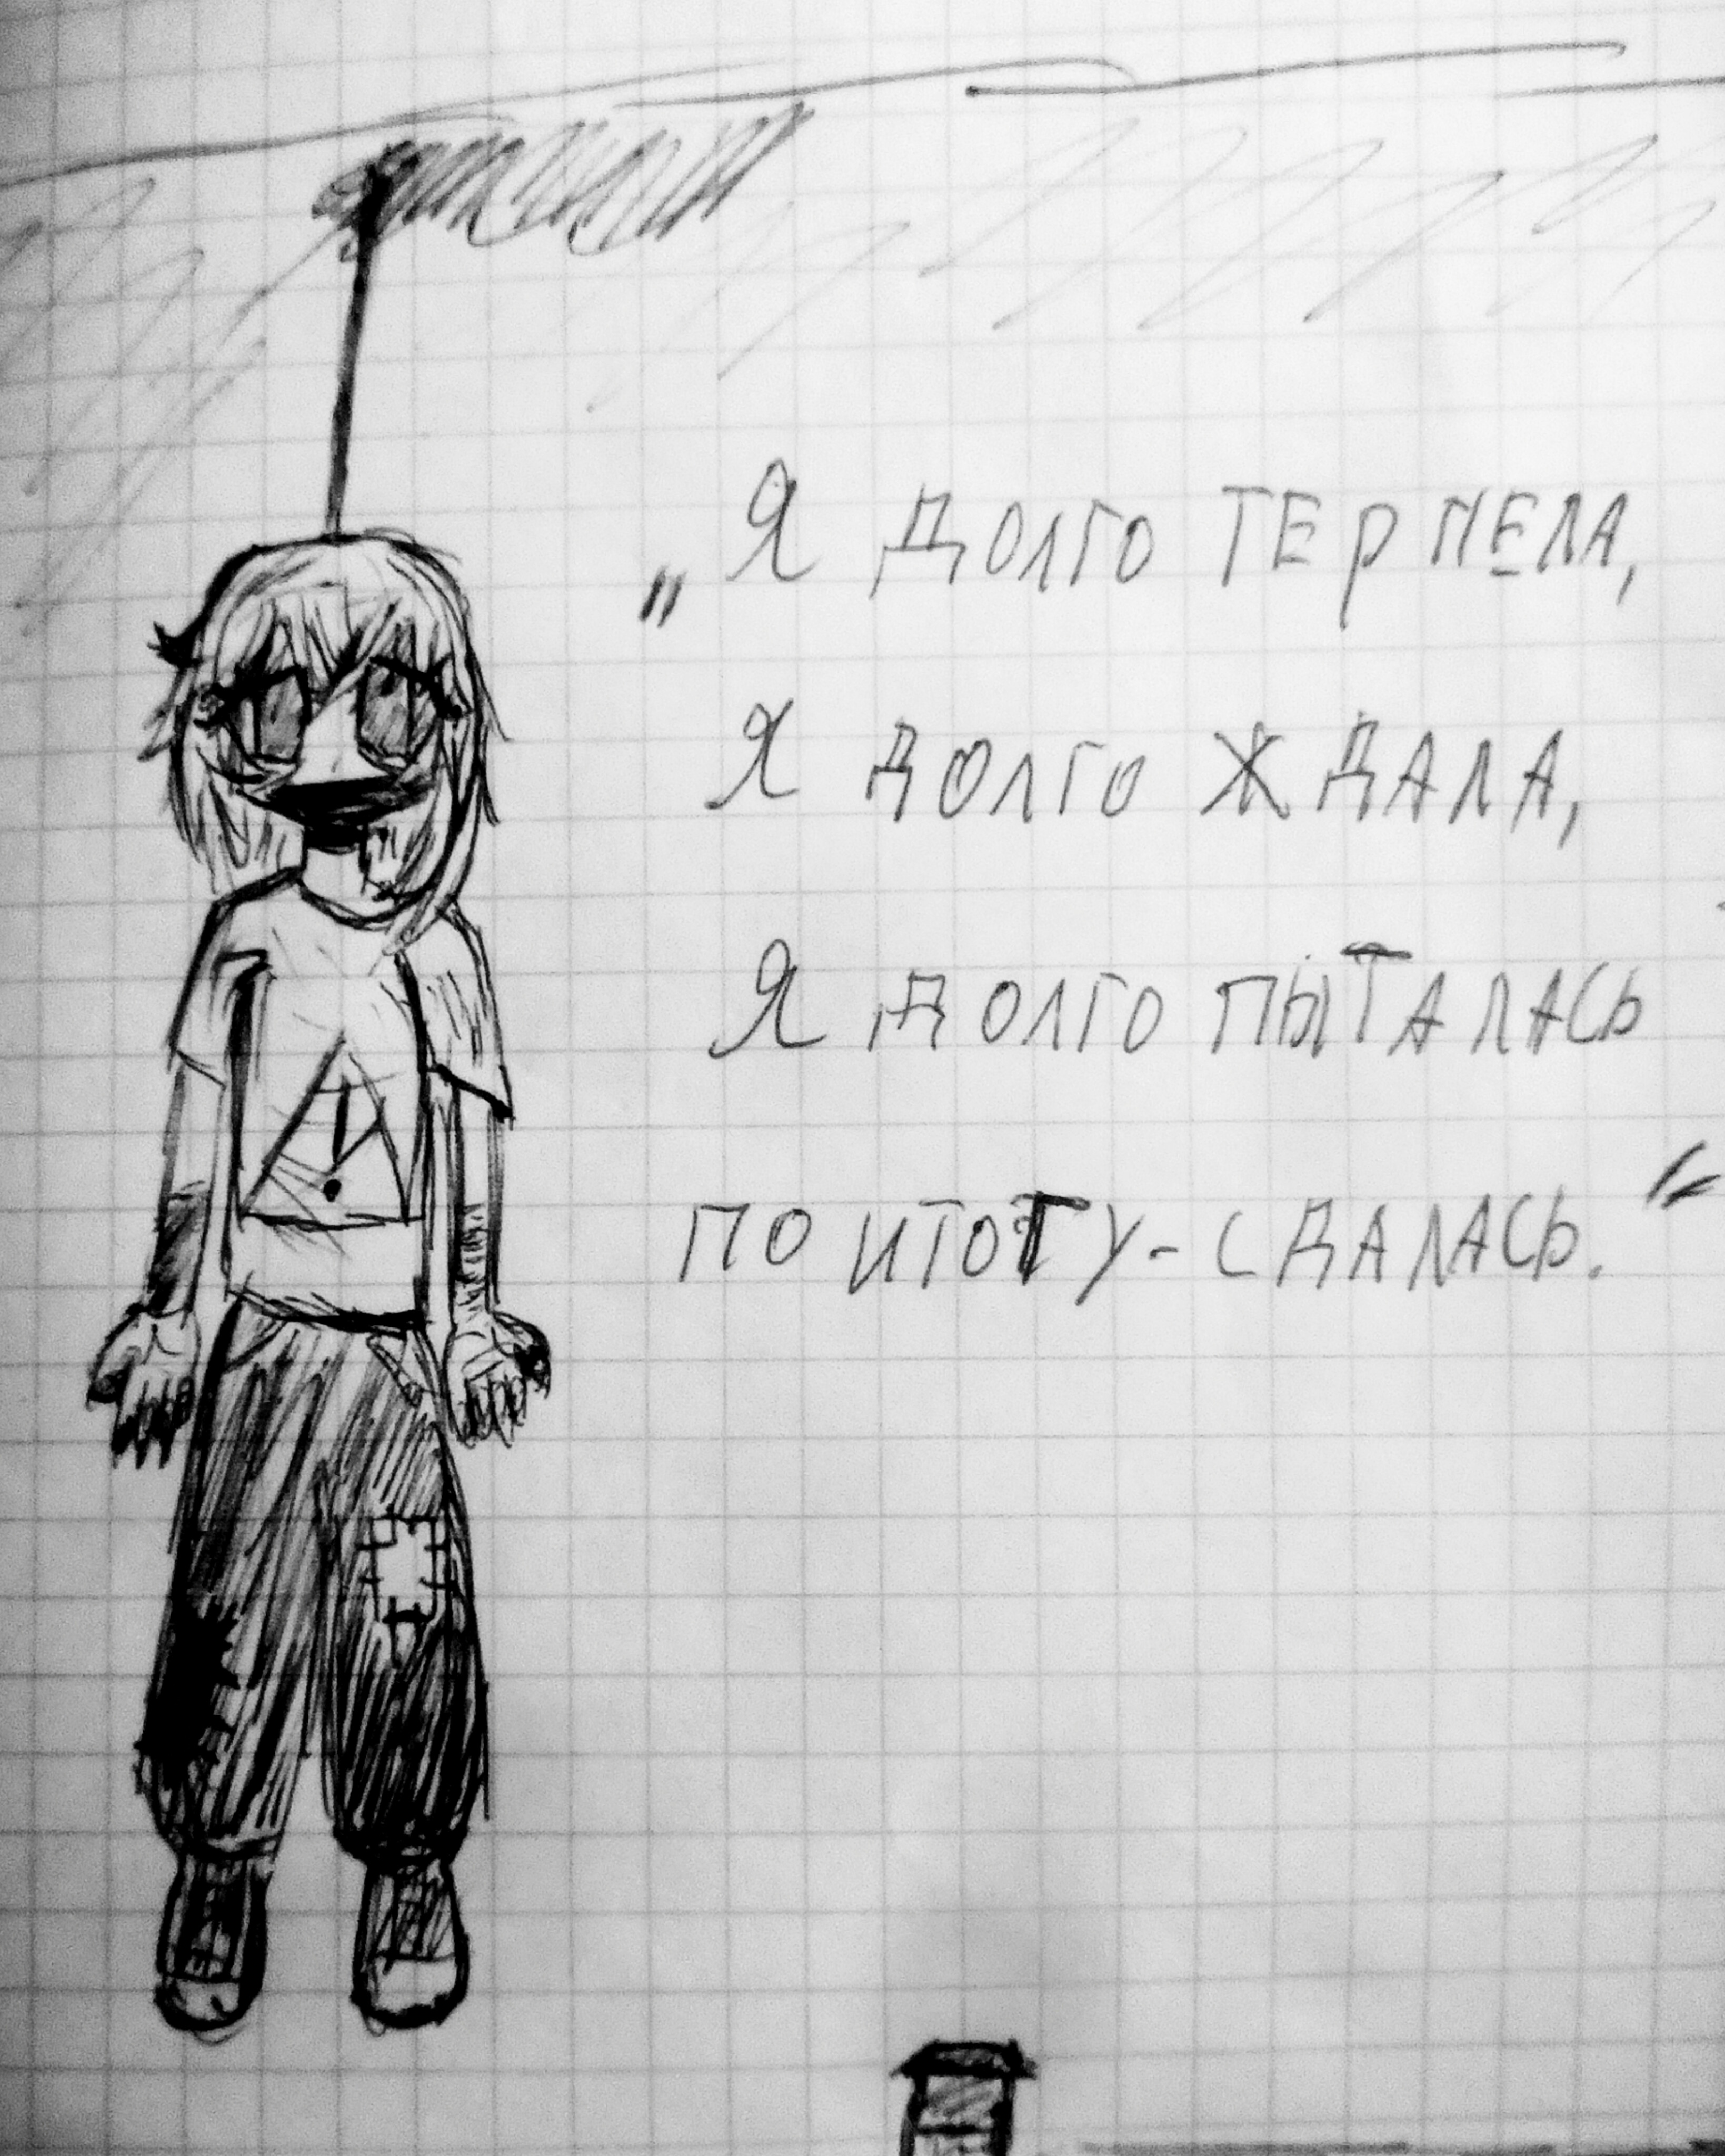 „Я долго терпела,
Я долго ждала,
Я долго пыталась
по итогу - сдалась.“
!